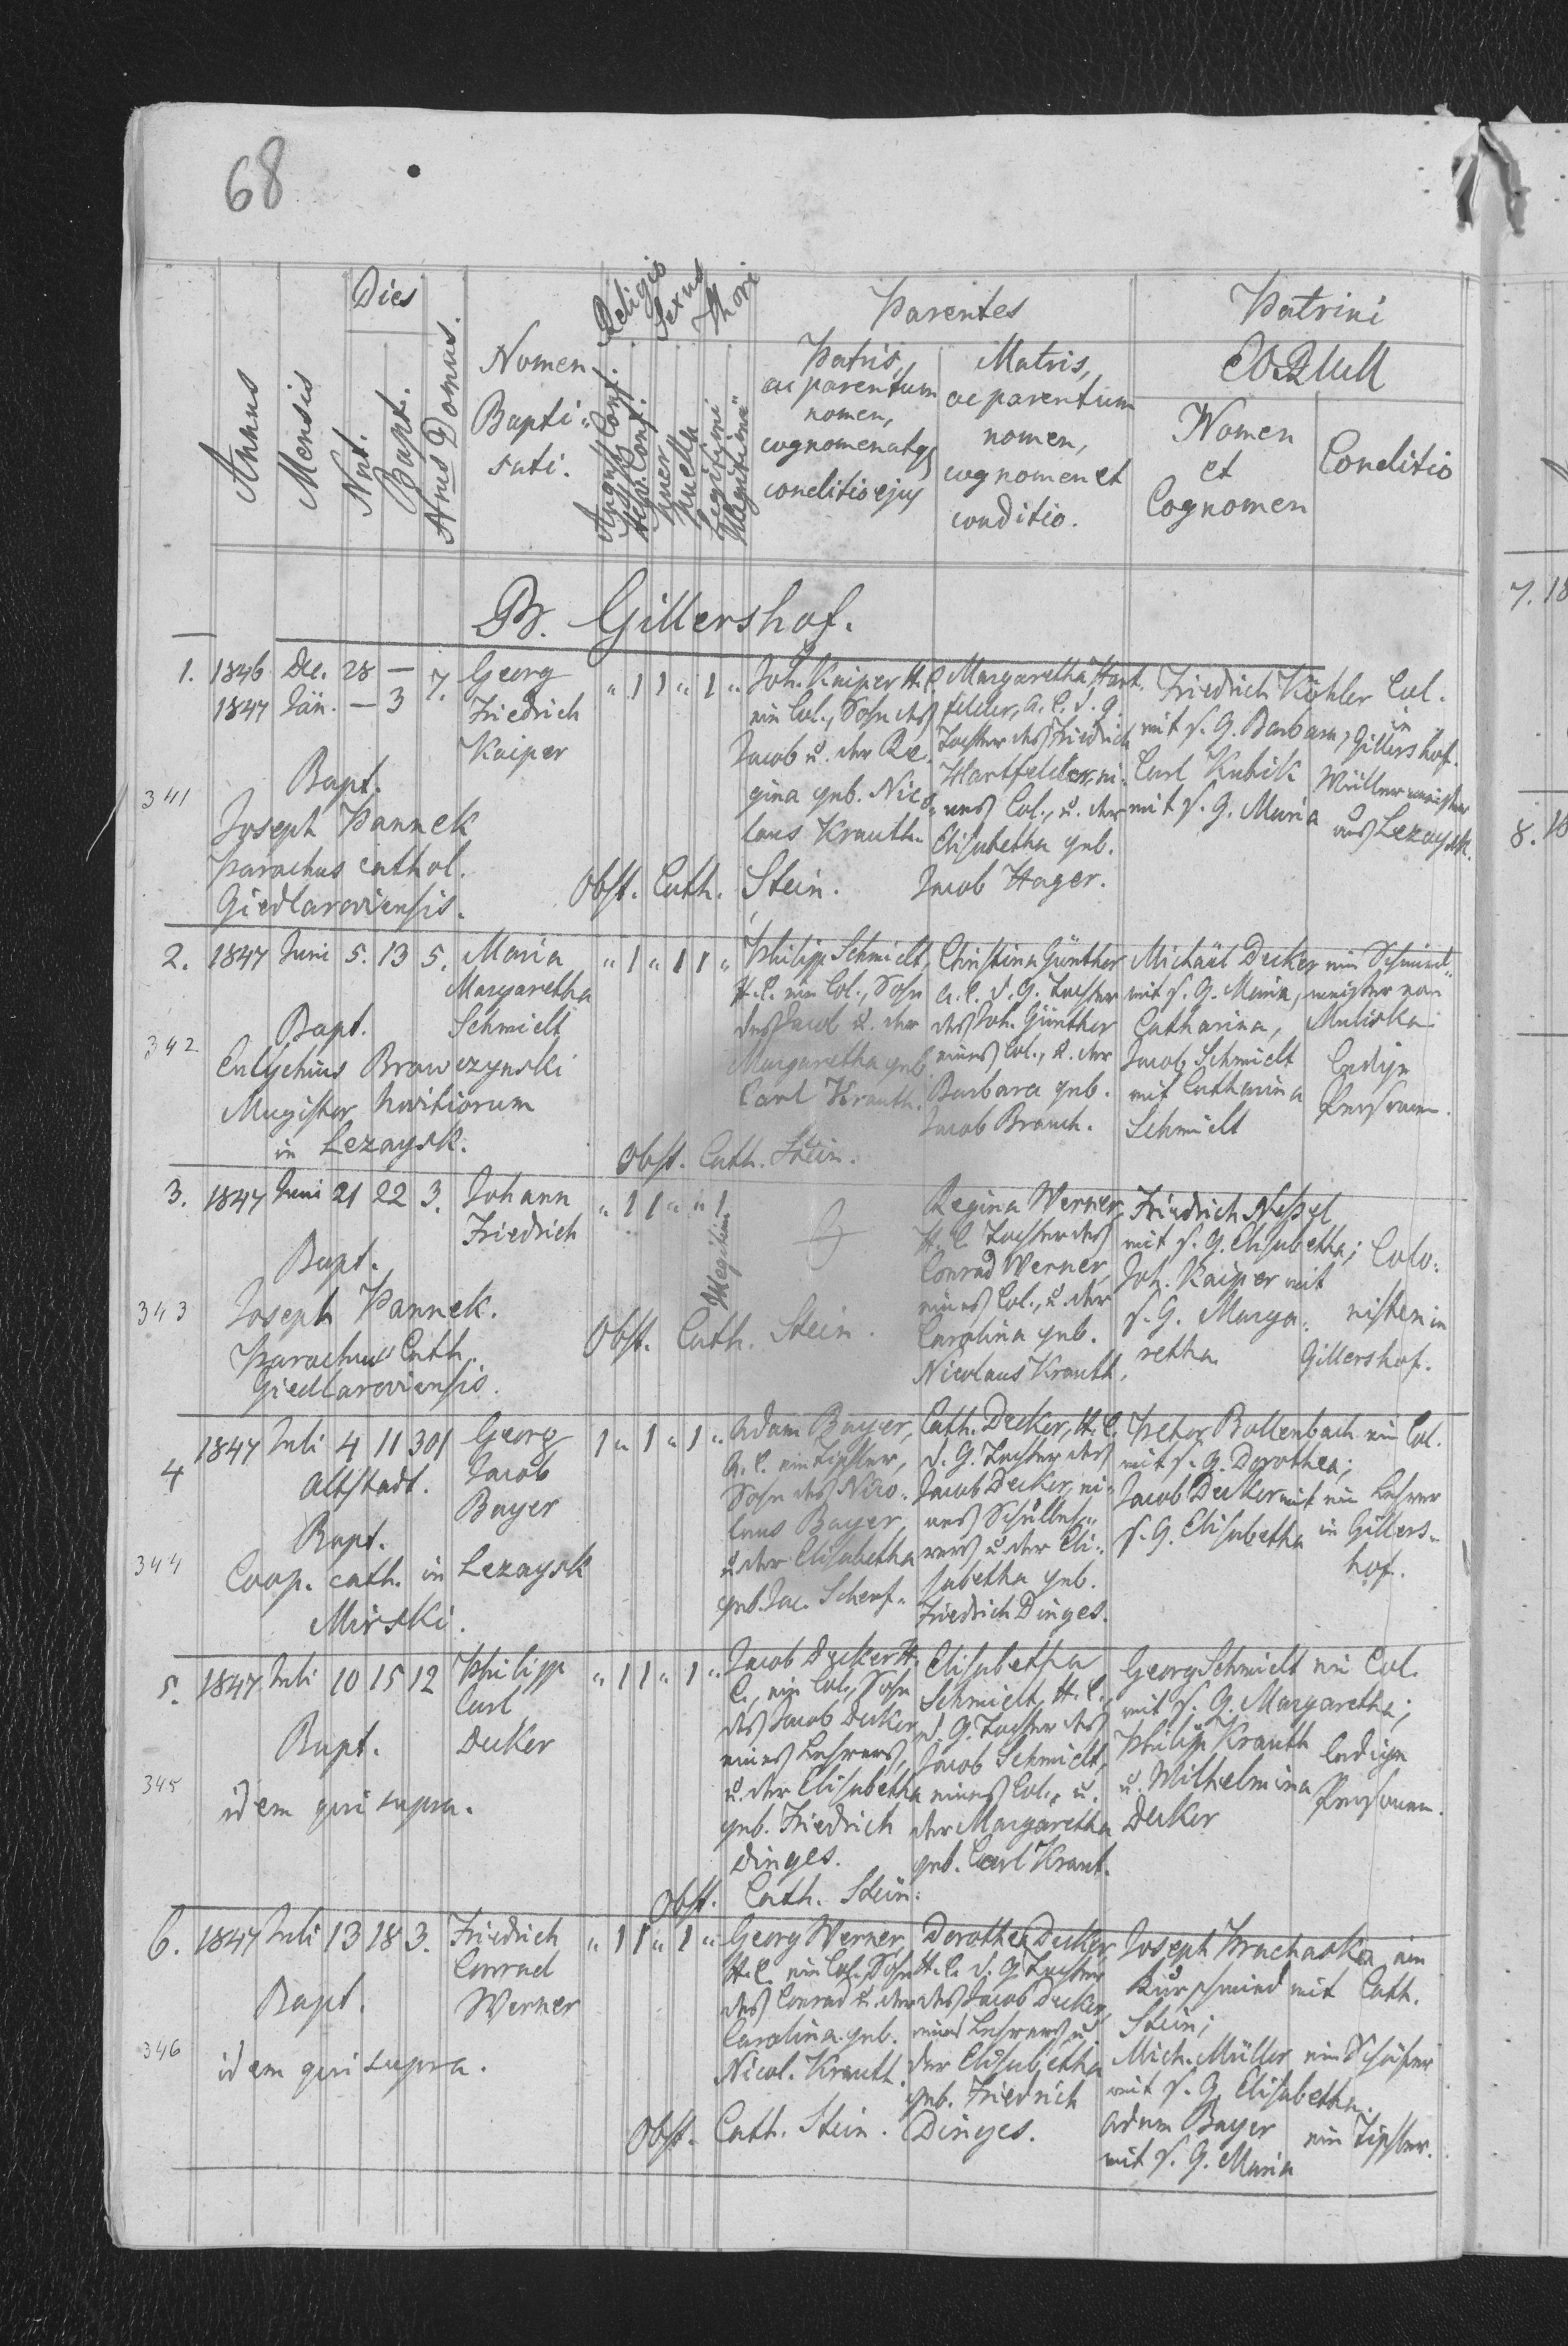 68
Dies
Religio
Sexus
Thori
Parentes
Patrini
Annus
Mensis
Nat.
Bapt.
Nrus Domus.
Nomen
Bapti-
sati.
August. Conf.
Helv. Conf.
puer
puella
Legitimi
Illegitimi
Patris,
ac parentum
nomen,
cognomen atq
conditio ejus
Matris,
ac parentum
nomen,
cognomen et
conditio.
Nomen
et
Cognomen
Conditio
Gillershof.
1. 1846 Dec. 28 — 7. Georg " 1 1 " 1 " Joh. Kaiper H. C. Margaretha Hart- Friedrich Köhler Col.
1847 Jän. — 3 Friedrich ein Col., Sohn des felder, A. C. d. G. mit s. G. Barbara, in
Kaiper Jacob u. der Re- Tochter des Friedrich Gillershof.
Bapt. gina geb. Nico- Hartfelder, ei- Carl Kubik Müllermeister
341 Joseph Pannek laus Krauth. nes Col., u. der mit s. G. Maria aus Lezaysk.
Parochus cathol. Elisabetha geb.
Giedlaroviensis. Obst. Cath. Stein. Jacob Hager.
2. 1847 Juni 5. 13 5. Maria " 1 " 1 1 " Philipp Schmidt, Christina Günther Michäel Decker ein Schmied-
Margaretha H. C. ein Col., Sohn A. C. d. G. Tochter mit s. G. Maria, meister von
Bapt. Schmidt des Jacob u. der des Joh. Günther Catharina,
342 Brawczynski Margaretha geb. eines Col., u. der Jacob Schmidt ledige
Magister Novitiorum Carl Krauth. Barbara geb. mit Catharina Personen.
in Lezaysk. Obst. Cath. Stein. Jacob Brauch. Schmidt
3. 1847 Juni 21 22 3. Johann " 1 1 " " 1 Regina Werner, Friedrich
Friedrich Illegitimi H. C. Tochter des mit s. G. Elisabetha; Colo-
Bapt. Conrad Werner, Joh. Kaiper mit
343 Joseph Pannek. eines Col., u. der s. G. Marga- nisten in
Parochus Cath. Obst. Cath. Stein. Carolina geb. retha Gillershof.
Giedlaroviensis. Nicolaus Krauth.
4 1847 Juli 4 11 301 Georg 1 " 1 " 1 " Adam Bayer, Cath. Decker, H. C. Peter Bollenbach ein Col.
Altstadt. Jacob A. C. ein Tischler, d. G. Tochter des mit s. G. Dorothea;
Bayer Sohn des Nico- Jacob Decker, ei- Jacob Decker mit ein Lehrer
Bapt. laus Bayer, nes Schulleh- s. G. Elisabetha in Gillers-
344 Coop. cath. in Lezaysk u. der Elisabetha rers u. der Eli- hof.
Mirski. geb. Jac. Scherf. sabetha geb.
Friedrich Dinges.
5. 1847 Juli 10 15 12 Philipp " 1 1 " 1 " Jacob Decker H. Elisabetha Georg Schmidt ein Col.
Carl C., ein Col., Sohn Schmidt, H. C. mit s. G. Margaretha;
Bapt. Decker des Jacob Decker d. G. Tochter des Philipp Krauth ledige
345 idem qui supra. eines Lehrers, Jacob Schmidt, u. Wilhelmina Personen.
u. der Elisabetha eines Col., u. Decker
geb. Friedrich der Margaretha
Dinges. geb. Carl Kraut.
Obst. Cath. Stein.
6. 1847 Juli 13 18 3. Friedrich " 1 1 " 1 " Georg Werner, Dorothea Decker Joseph Prochaska ein
Conrad H. C. ein Col., Sohn H. C. d. G. Tochter Kurschmied mit Cath.
Bapt. Werner des Conrad u. der des Jacob Decker, Stein;
346 idem qui supra. Carolina geb. eines Lehrers u. Mich. Müller ein Schäfer
Nicol. Krauth. der Elisabetha mit s. G. Elisabetha.
geb. Friedrich Adam Bayer ein Tischler.
Obst. Cath. Stein. Dinges. mit s. G. Maria
7. 18
8. 18